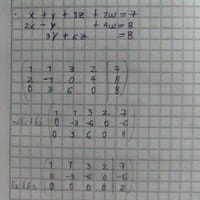 x + y + 3z + 2w = 7
2x - y + 4w = 8
3y + 6z = 8
1 1 3 2 7
2 -1 0 4 8
0 3 6 0 8
1 1 3 2 7
0 -3 -6 0 -6
0 3 6 0 8
1 1 3 2 7
0 -3 -6 0 -6
0 0 0 0 2